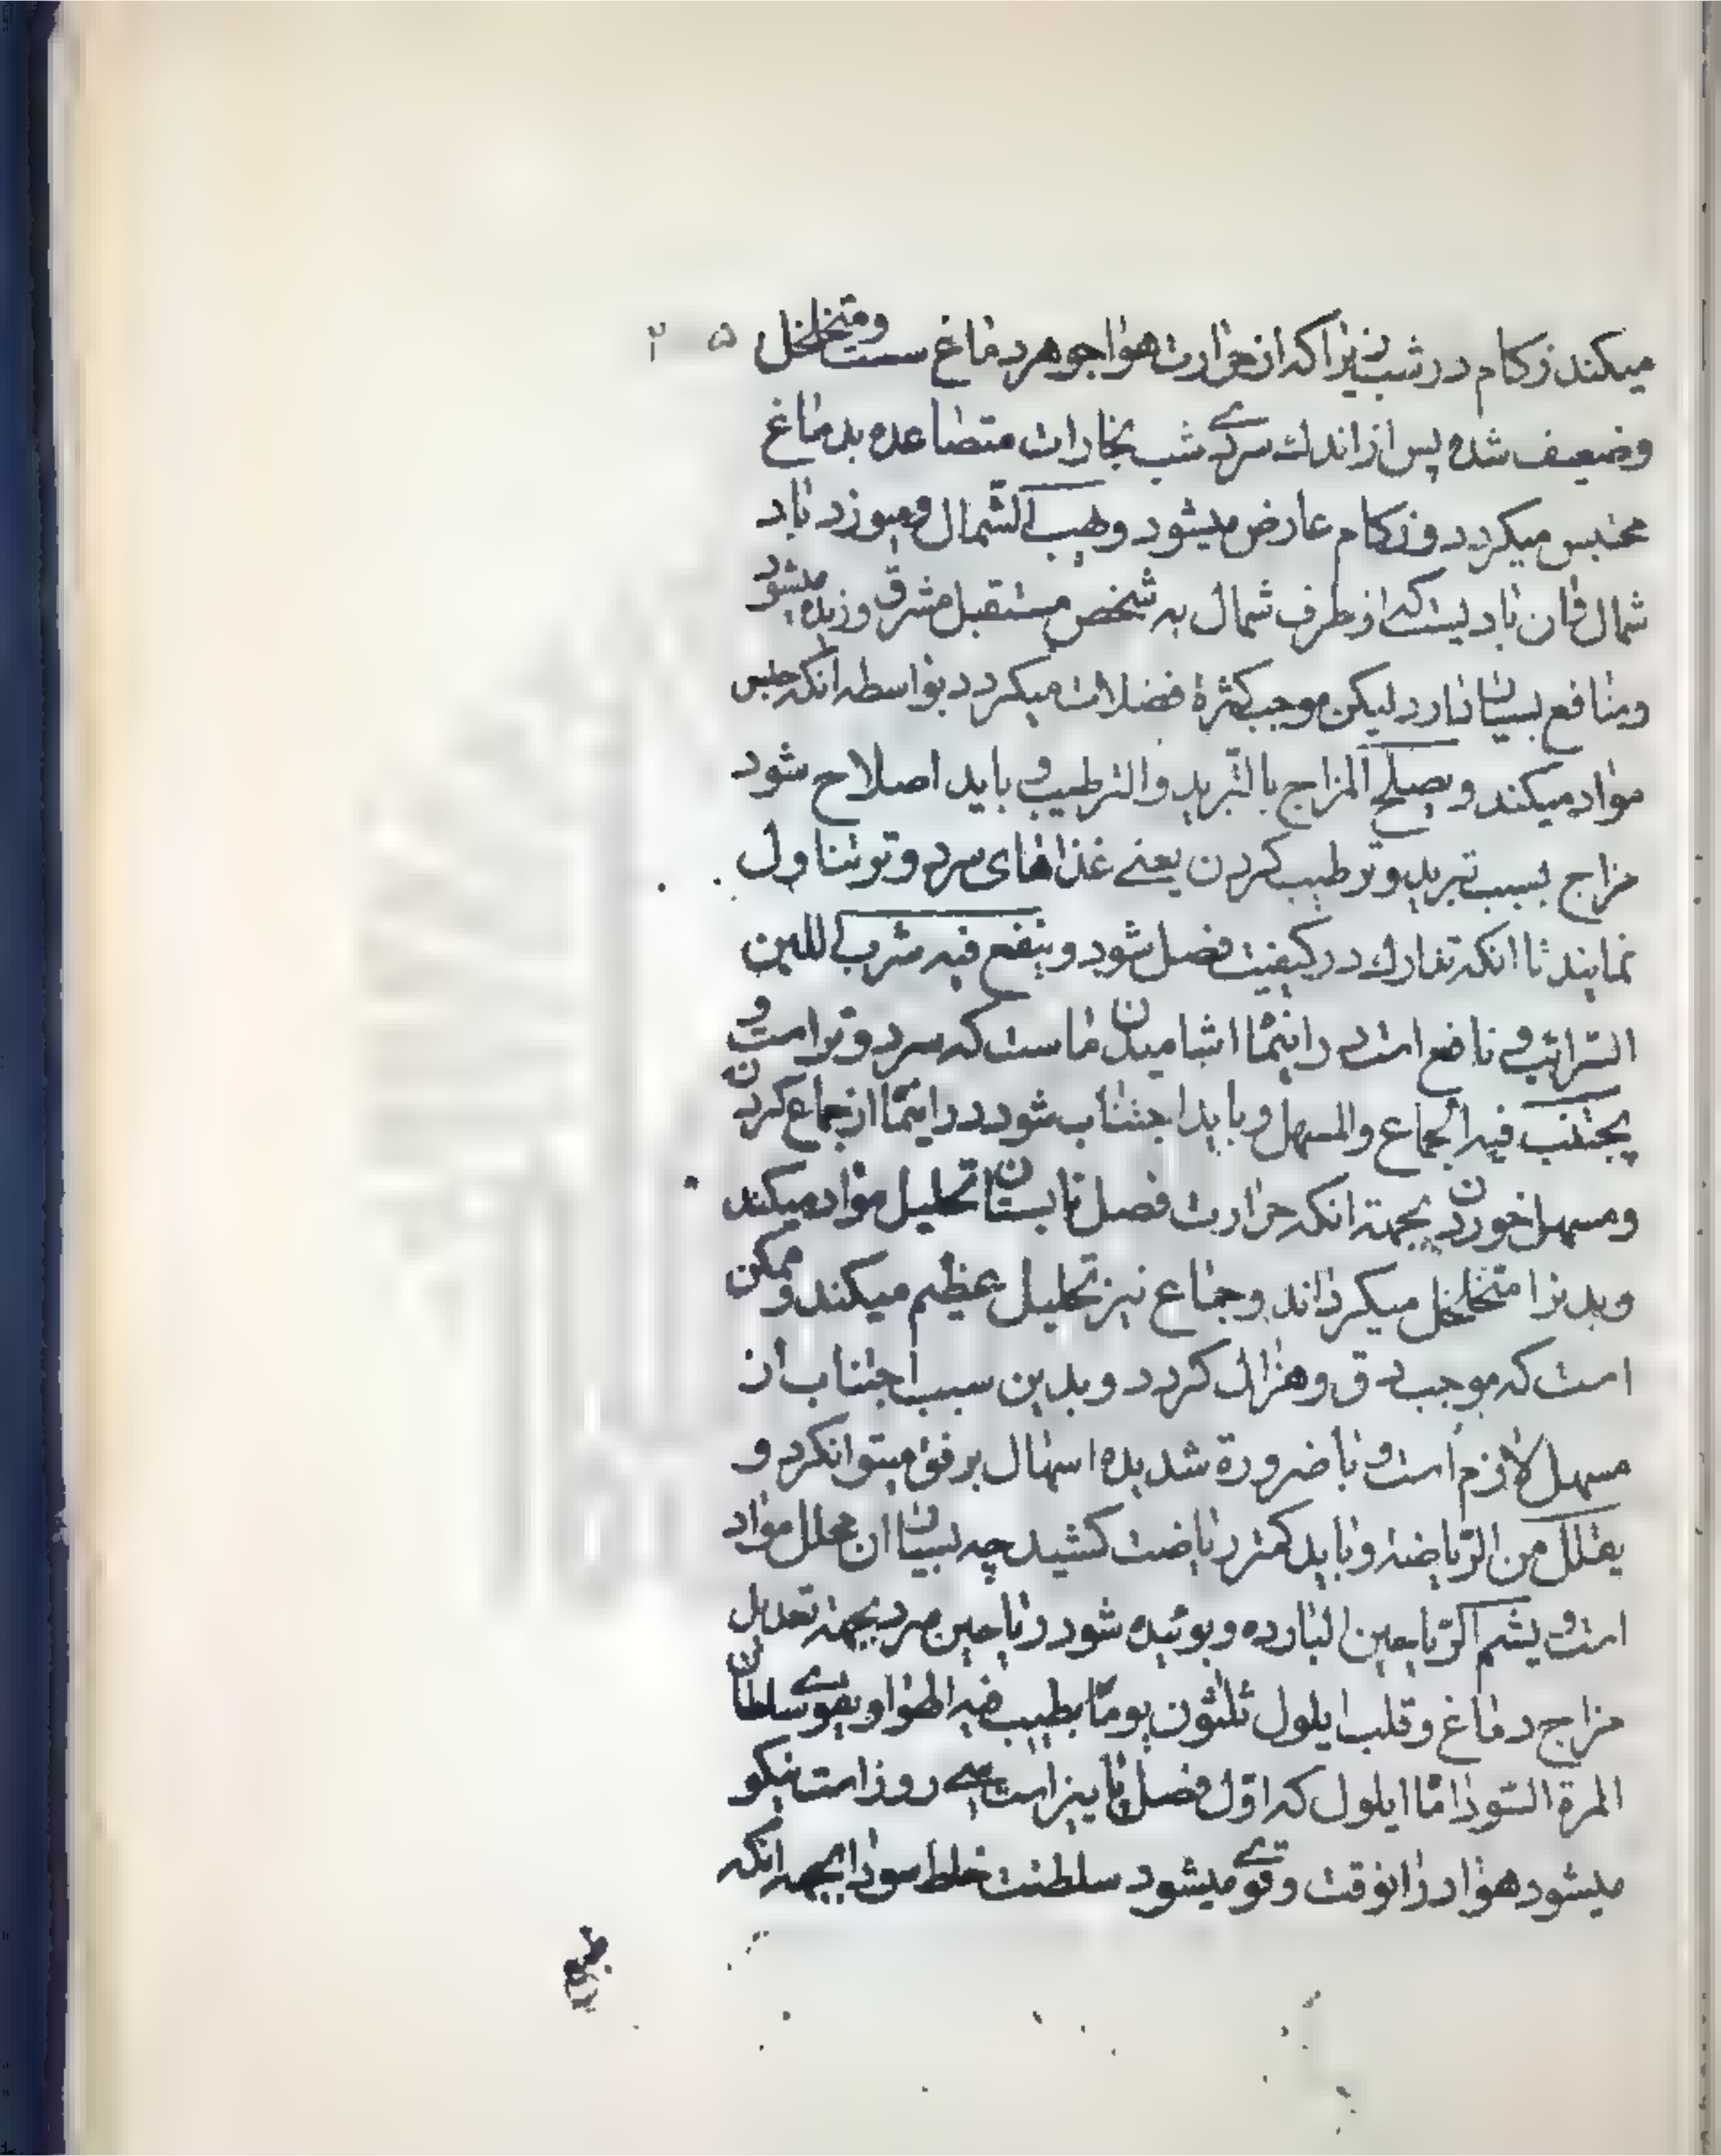 میکند زکام در شب زیرا که از حرارت هوا جوهر دماغ سست و متخلخل
وضعیف شده پس از اندك سردے شب بخارات متصاعده بدماغ
محتبس میکردد و زکام عارض میشود و یهب الشمال و میوزد باد
شمال و ان بادیست که از طرف شمال به شخص مستقبل مشرق وزیده میشود
ومنافع بسیار دارد لیکن موجب کثرة فضلات میکردد بواسطه انکه حبس
مواد میکند و یصلح المزاج بالتبرید والترطیب و باید اصلاح شود
مزاج بسبب تبرید و ترطیب کردن یعنے غذاهای سرد و تر تناول
نمایند تا انکه تدارك در کیفیت فصل شود و ینفع فیه شرب اللبن
الترائب و نافع است در اینماه اشامیدن ماست که سرد و تر است و
یجتنب فیه الجماع والمسهل و باید اجتناب شود در اینماه از جماع کردن
ومسهل خوردن بجهته انکه حرارت فصل تابستان تحلیل مواد میکند
وبدنرا متخلخل میکرداند و جماع نیز تحلیل عظیم میکند و ممکن
است که موجب دق و هزال کردد و بدین سبب اجتناب از
مسهل لازم است و با ضرورة شدیده اسهال برفق میتوانکرد و
یقلل من الریاضة و باید کمتر ریاضت کشید چه بسیار ان محلل مواد
است و یشم الریاحین البارده و بوئیده شود ریاحین سرد بجهة تعدیل
مزاج دماغ و قلب ایلول ثلثون یومًا یطیب فیه الهوا و یقوے سلطان
المرة السودا امّا ایلول که اوّل فصل پاییز است سے روز است نیکو
میشود هوا در انوقت و قوے میشود سلطنت خلط سودا بجهة انکه
طبع